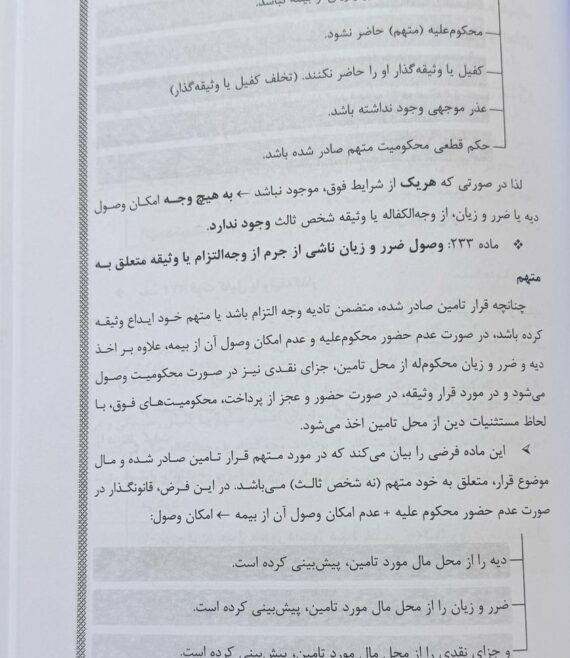 از بیمه نباشد.
محکوم‌علیه (متهم) حاضر نشود.
کفیل یا وثیقه‌گذار او را حاضر نکنند. (تخلف کفیل یا وثیقه‌گذار)
عذر موجهی وجود نداشته باشد.
حکم قطعی محکومیت متهم صادر شده باشد.
لذا در صورتی که هریک از شرایط فوق، موجود نباشد ← به هیچ وجـه امکـان وصـول
دیه یا ضرر و زیان، از وجه‌الکفاله یا وثیقه شخص ثالث وجود ندارد.
❖ ماده ۲۳۳: وصول ضرر و زیان ناشی از جرم از وجه‌التزام یا وثیقه متعلق به
متهم
چنانچه قرار تامین صادر شده، متضمن تادیه وجه التزام باشد یا متهم خـود ایـداع وثیقـه
کرده باشد، در صورت عدم حضور محکوم‌علیه و عدم امکان وصول آن از بیمه، علاوه بـر اخـذ
دیه و ضرر و زیان محکوم‌له از محل تامین، جزای نقدی نیـز در صـورت محکومیـت وصـول
می‌شود و در مورد قرار وثیقه، در صورت حضور و عجز از پرداخت، محکومیـت‌هـای فـوق، بـا
لحاظ مستثنیات دین از محل تامین اخذ می‌شود.
➢ این ماده فرضی را بیان می‌کند که در مورد متـهم قـرار تـامین صـادر شـده و مـال
موضوع قرار، متعلق به خود متهم (نه شخص ثالـث) مـی‌باشـد. در ایـن فـرض، قانونگـذار در
صورت عدم حضور محکوم علیه + عدم امکان وصول آن از بیمه ← امکان وصول:
دیه را از محل مال مورد تامین، پیش‌بینی کرده است.
ضرر و زیان را از محل مال مورد تامین، پیش‌بینی کرده است.
و جزای نقدی را از محل مال مورد تامین، پیش‌بینی کرده است.